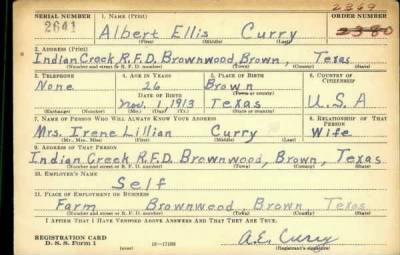 2369
SERIAL NUMBER 1. NAME (Print) ORDER NUMBER
2641 Albert Ellis Curry 2380
(First) (Middle) (Last)
2. ADDRESS (Print)
Indian Creek R.F.D. Brownwood, Brown, Texas
(Number and street or R. F. D. number) (Town) (County) (State)
3. TELEPHONE 4. AGE IN YEARS 5. PLACE OF BIRTH 6. COUNTRY OF CITIZENSHIP
None 26 Brown
DATE OF BIRTH (Town or county)
Nov. 1, 1913 Texas U.S.A
(Exchange) (Number) (Mo.) (Day) (Yr.) (State or country)
7. NAME OF PERSON WHO WILL ALWAYS KNOW YOUR ADDRESS 8. RELATIONSHIP OF THAT PERSON
Mrs. Irene Lillian Curry Wife
(Mr., Mrs., Miss) (First) (Middle) (Last)
9. ADDRESS OF THAT PERSON
Indian Creek R.F.D. Brownwood, Brown, Texas
(Number and street or R. F. D. number) (Town) (County) (State)
10. EMPLOYER'S NAME
Self
11. PLACE OF EMPLOYMENT OR BUSINESS
Farm Brownwood, Brown, Texas
(Number and street or R. F. D. number) (Town) (County) (State)
I AFFIRM THAT I HAVE VERIFIED ABOVE ANSWERS AND THAT THEY ARE TRUE.
REGISTRATION CARD A.E. Curry
D. S. S. Form 1 16—17105 (Registrant's signature)